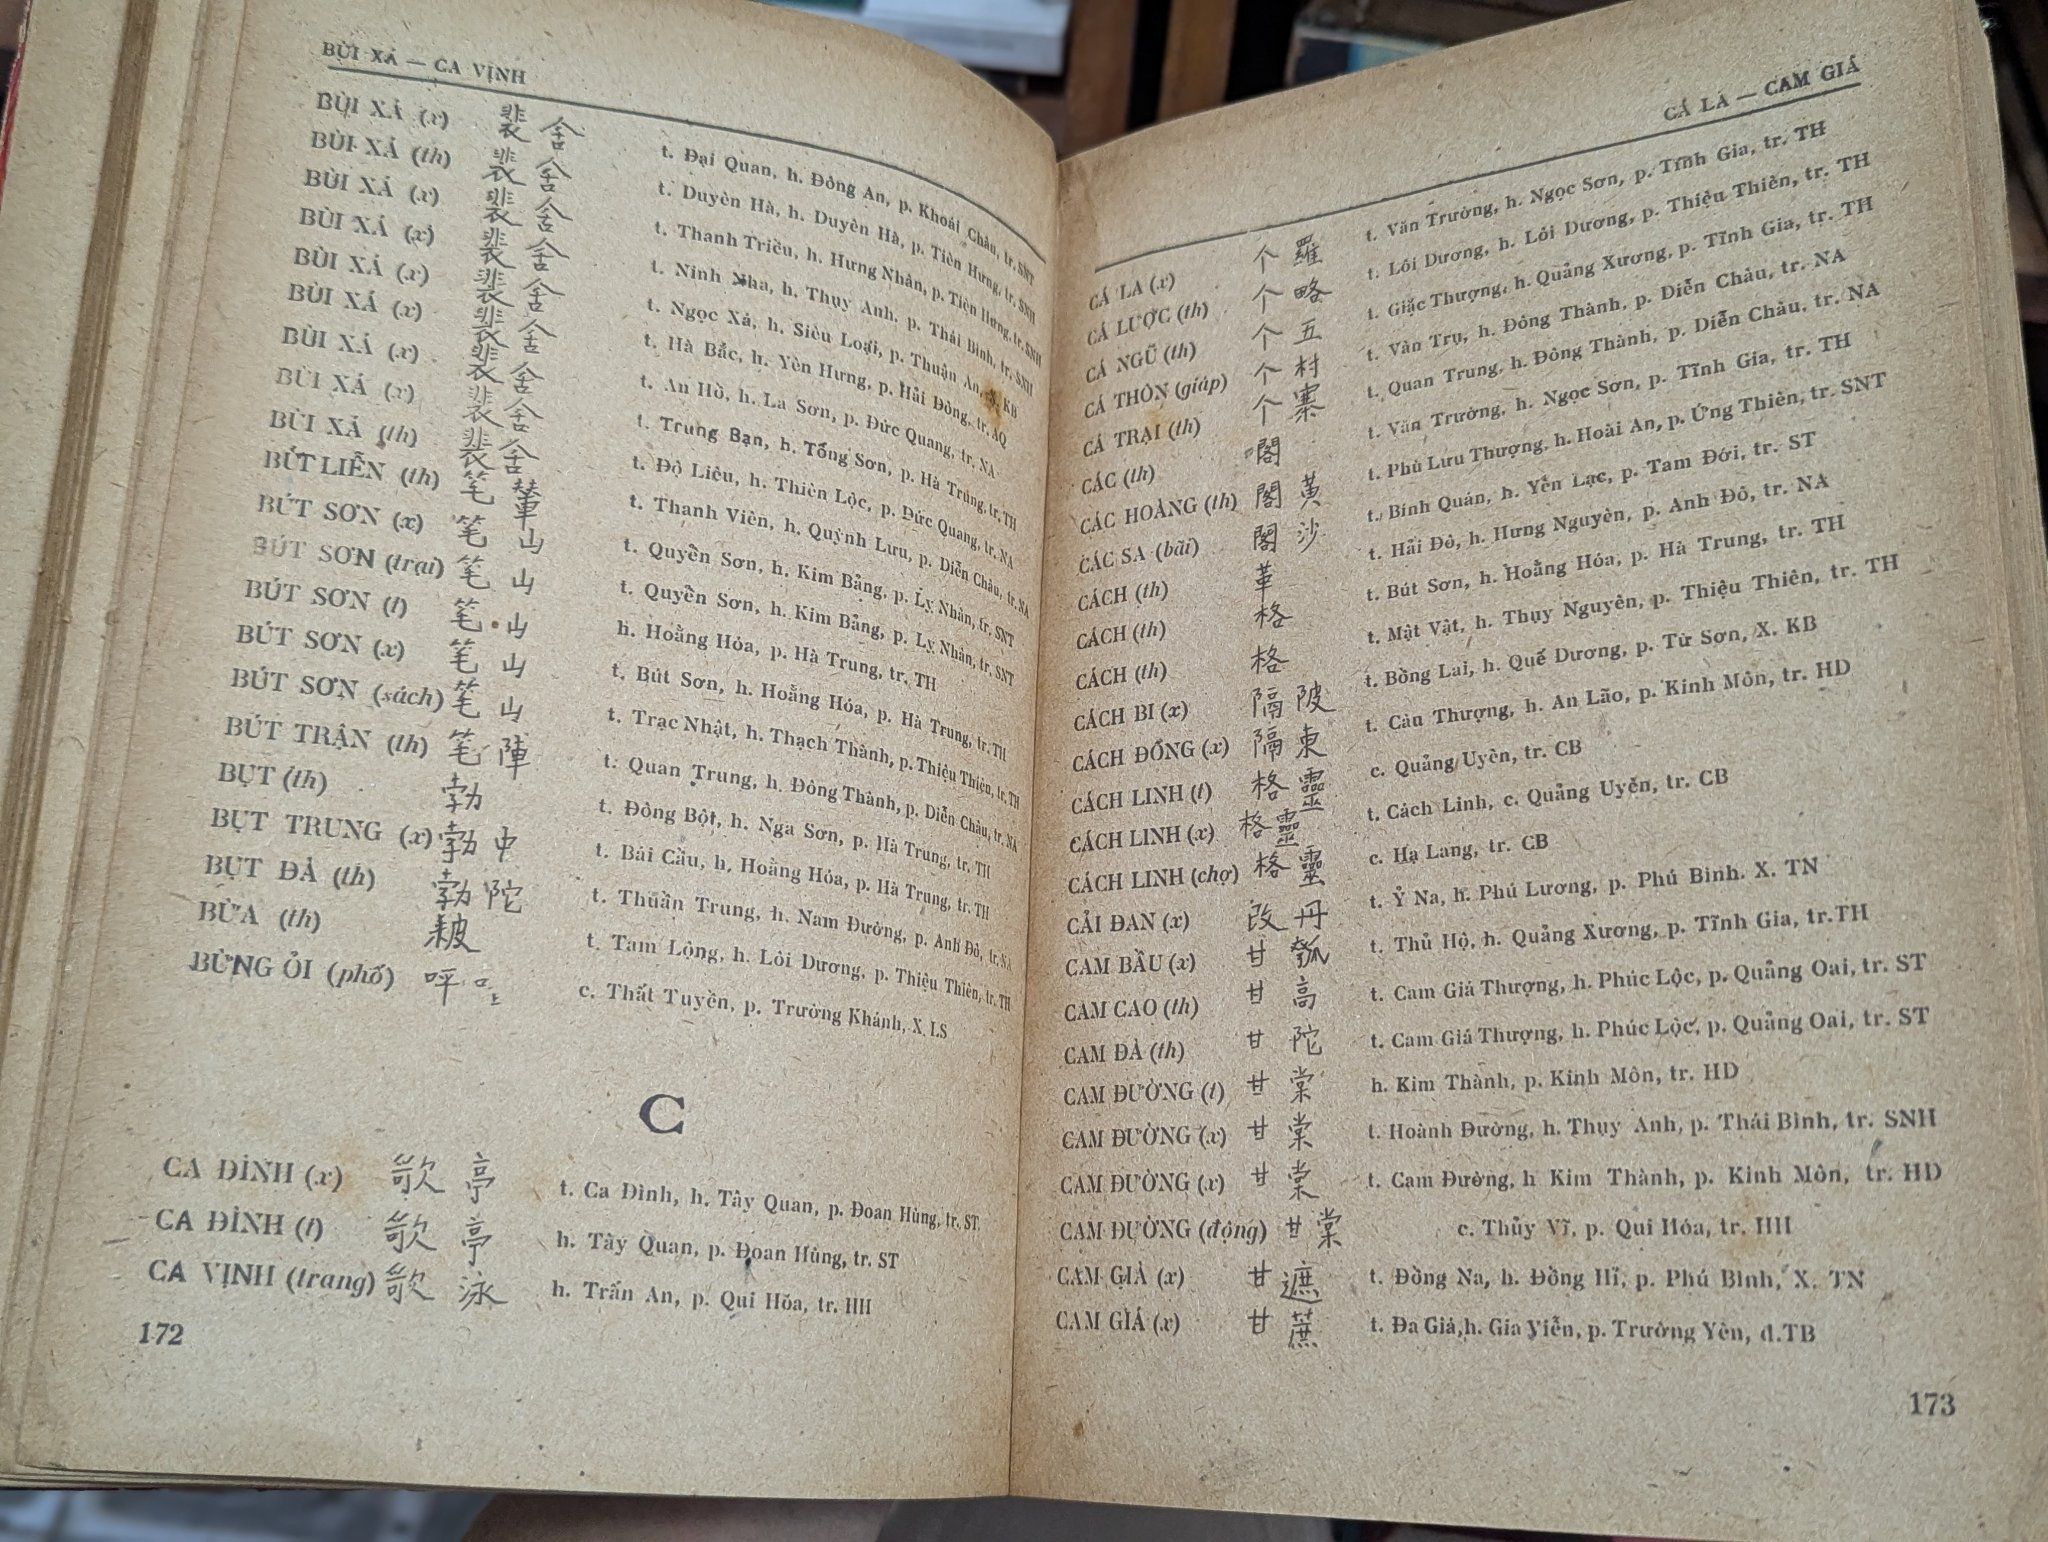 BÙI XÁ — CA VỊNH
BÙI XÁ (x) 裴舍 t. Đại Quan, h. Đông An, p. Khoái Châu, tr. SNT
BÙI XÁ (th) 裴舍 t. Duyên Hà, h. Duyên Hà, p. Tiên Hưng, tr. SNH
BÙI XÁ (x) 裴舍 t. Thanh Triều, h. Hưng Nhân, p. Tiên Hưng, tr. SNH
BÙI XÁ (x) 裴舍 t. Ninh Nha, h. Thụy Anh, p. Thái Bình, tr. SNH
BÙI XÁ (x) 裴舍 t. Ngọc Xá, h. Siêu Loại, p. Thuận An, X. KB
BÙI XÁ (x) 裴舍 t. Hà Bắc, h. Yên Hưng, p. Hải Đông, tr. AQ
BÙI XÁ (x) 裴舍 t. An Hồ, h. La Sơn, p. Đức Quang, tr. NA
BÙI XÁ (x) 裴舍 t. Trung Bạn, h. Tống Sơn, p. Hà Trung, tr. TH
BÙI XÁ (th) 裴舍 t. Độ Liêu, h. Thiên Lộc, p. Đức Quang, tr. NA
BÚT LIỄN (th) 笔輦 t. Thanh Viên, h. Quỳnh Lưu, p. Diễn Châu, tr. NA
BÚT SƠN (x) 笔山 t. Quyển Sơn, h. Kim Bảng, p. Lý Nhân, tr. SNT
BÚT SƠN (trại) 笔山 t. Quyển Sơn, h. Kim Bảng, p. Lý Nhân, tr. SNT
BÚT SƠN (t) 笔山 h. Hoằng Hóa, p. Hà Trung, tr. TH
BÚT SƠN (x) 笔山 t. Bút Sơn, h. Hoằng Hóa, p. Hà Trung, tr. TH
BÚT SƠN (sách) 笔山 t. Trạc Nhật, h. Thạch Thành, p. Thiệu Thiên, tr. TH
BÚT TRẬN (th) 笔陣 t. Quan Trung, h. Đông Thành, p. Diễn Châu, tr. NA
BỤT (th) 勃 t. Đông Bột, h. Nga Sơn, p. Hà Trung, tr. TH
BỤT TRUNG (x) 勃中 t. Bái Cầu, h. Hoằng Hóa, p. Hà Trung, tr. TH
BỤT ĐÀ (th) 勃陀 t. Thuần Trung, h. Nam Đường, p. Anh Đô, tr. NA
BỪA (th) t. Tam Lộng, h. Lôi Dương, p. Thiệu Thiên, tr. TH
BỪNG ỎI (phố) 呯 c. Thất Tuyền, p. Trường Khánh, X. LS
C
CA ĐÌNH (x) 亭 t. Ca Đình, h. Tây Quan, p. Đoan Hùng, tr. ST
CA ĐÌNH (t) 亭 h. Tây Quan, p. Đoan Hùng, tr. ST
CA VỊNH (trang) 泳 h. Trấn An, p. Qui Hóa, tr. HH
172
CẢ LA — CAM GIÁ
CẢ LA (x) 个羅 t. Văn Trường, h. Ngọc Sơn, p. Tĩnh Gia, tr. TH
CẢ LƯỢC (th) 个略 t. Lôi Dương, h. Lôi Dương, p. Thiệu Thiên, tr. TH
CẢ NGŨ (th) 个五 t. Giặc Thượng, h. Quảng Xương, p. Tĩnh Gia, tr. TH
CẢ THÔN (giáp) 个村 t. Vân Trụ, h. Đông Thành, p. Diễn Châu, tr. NA
CẢ TRẠI (th) 个寨 t. Quan Trung, h. Đông Thành, p. Diễn Châu, tr. NA
CÁC (th) 閣 t. Văn Trường, h. Ngọc Sơn, p. Tĩnh Gia, tr. TH
CÁC HOÀNG (th) 閣黃 t. Phù Lưu Thượng, h. Hoài An, p. Ứng Thiên, tr. SNT
CÁC SA (bãi) 閣沙 t. Bình Quán, h. Yên Lạc, p. Tam Đới, tr. ST
CÁCH (th) 革 t. Hải Đô, h. Hưng Nguyên, p. Anh Đô, tr. NA
CÁCH (th) 格 t. Bút Sơn, h. Hoằng Hóa, p. Hà Trung, tr. TH
CÁCH (th) 格 t. Mật Vật, h. Thụy Nguyên, p. Thiệu Thiên, tr. TH
CÁCH BI (x) 隔陂 t. Bồng Lai, h. Quế Dương, p. Từ Sơn, X. KB
CÁCH ĐÔNG (x) 隔東 t. Câu Thượng, h. An Lão, p. Kinh Môn, tr. HD
CÁCH LINH (t) 格靈 c. Quảng Uyên, tr. CB
CÁCH LINH (x) 格靈 t. Cách Linh, c. Quảng Uyên, tr. CB
CÁCH LINH (chợ) 格靈 c. Hạ Lang, tr. CB
CẢI ĐAN (x) 改丹 t. Ỷ Na, h. Phú Lương, p. Phú Bình. X. TN
CAM BẦU (x) 甘瓠 t. Thủ Hộ, h. Quảng Xương, p. Tĩnh Gia, tr.TH
CAM CAO (th) 甘高 t. Cam Giá Thượng, h. Phúc Lộc, p. Quảng Oai, tr. ST
CAM ĐÀ (th) 甘陀 t. Cam Giá Thượng, h. Phúc Lộc, p. Quảng Oai, tr. ST
CAM ĐƯỜNG (t) 甘棠 h. Kim Thành, p. Kinh Môn, tr. HD
CAM ĐƯỜNG (x) 甘棠 t. Hoành Đường, h. Thụy Anh, p. Thái Bình, tr. SNH
CAM ĐƯỜNG (x) 甘棠 t. Cam Đường, h Kim Thành, p. Kinh Môn, tr. HD
CAM ĐƯỜNG (động) 甘棠 c. Thủy Vĩ, p. Qui Hóa, tr. HH
CAM GIÀ (x) 甘遮 t. Đồng Na, h. Đồng Hỉ, p. Phú Bình, X. TN
CAM GIÁ (x) 甘蔗 t. Đa Giá,h. Gia Viễn, p. Trường Yên, đ.TB
173